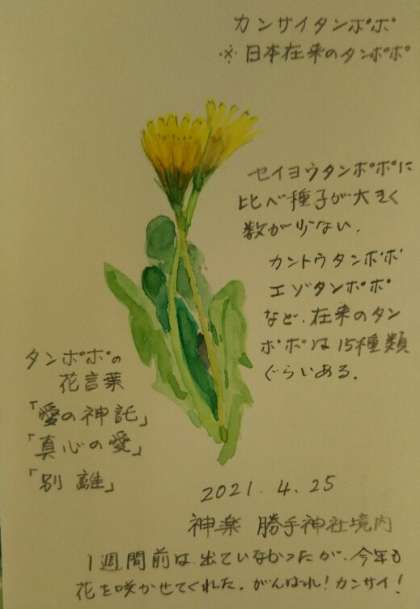 カンサイタンポポ
※日本在来のタンポポ
セイヨウタンポポに
比べ種子が大きく
数が少ない。
カントウタンポポ
エゾタンポポ
など、在来のタン
ポポは15種類
ぐらいある。
タンポポの
花言葉
「愛の神託」
「真心の愛」
「別離」
2021.4.25
神楽 勝手神社境内
1週間前は出ていなかったが、今年も
花を咲かせてくれた。がんばれ!カンサイ!